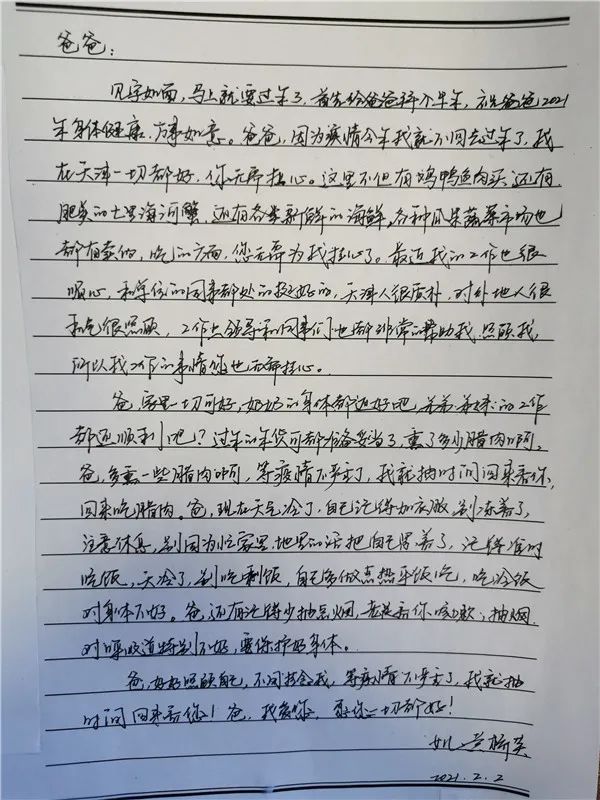 爸爸:
见字如面,马上就要过年了,首先给爸爸拜个早年,祝爸爸2021
年身体健康,万事如意。爸爸,因为疫情今年我就不回去过年了,我
在天津一切都好,你无需挂心。这里不但有鸡鸭鱼肉买,还有
肥美的七里海河蟹,还有各类新鲜的海鲜,各种瓜果蔬菜市场也
都有卖的,吃的方面,您无需为我挂心了。最近我的工作也很
顺心,和单位的同事都处的挺好的,天津人很质朴,对外地人很
和气很照顾,工作上领导和同事们也都非常的帮助我、照顾我,
所以我工作的事情您也无需挂心。
爸,家里一切可好,奶奶的身体都还好吧,弟弟、弟妹的工作
都还顺利吧?过年的年货可都准备妥当了,熏了多少腊肉啊。
爸,多熏一些腊肉啊,等疫情不严重了,我就抽时间回来看你,
回来吃腊肉。爸,现在天气冷了,自己记得加衣服,别冻着了,
注意休息,别因为忙家里、地里的活把自己累着了,记得准时
吃饭,天冷了,别吃剩饭,自己多做点热乎饭吃,吃冷饭
对身体不好。爸,还有记得少抽点烟,老是看你咳嗽,抽烟
对呼吸道特别不好,要保护好身体。
爸,好好照顾自己,不用挂念我,等疫情不严重了,我就抽
时间回来看您!爸,我爱您,愿您一切都好!
女儿:黄
2021.2.2